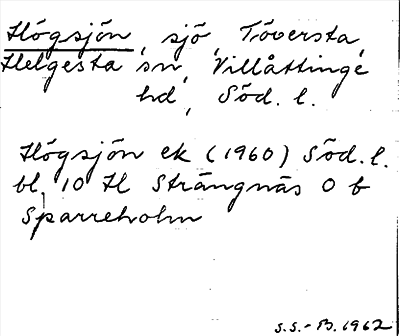 Högsjön, sjö, Töversta,
Helgesta sn, Villåttinge
hd, Söd. l.
Högsjön ek (1960) Söd. l.
bl. 10 H Strängnäs O b
Sparreholm
S.S.-B. 1962